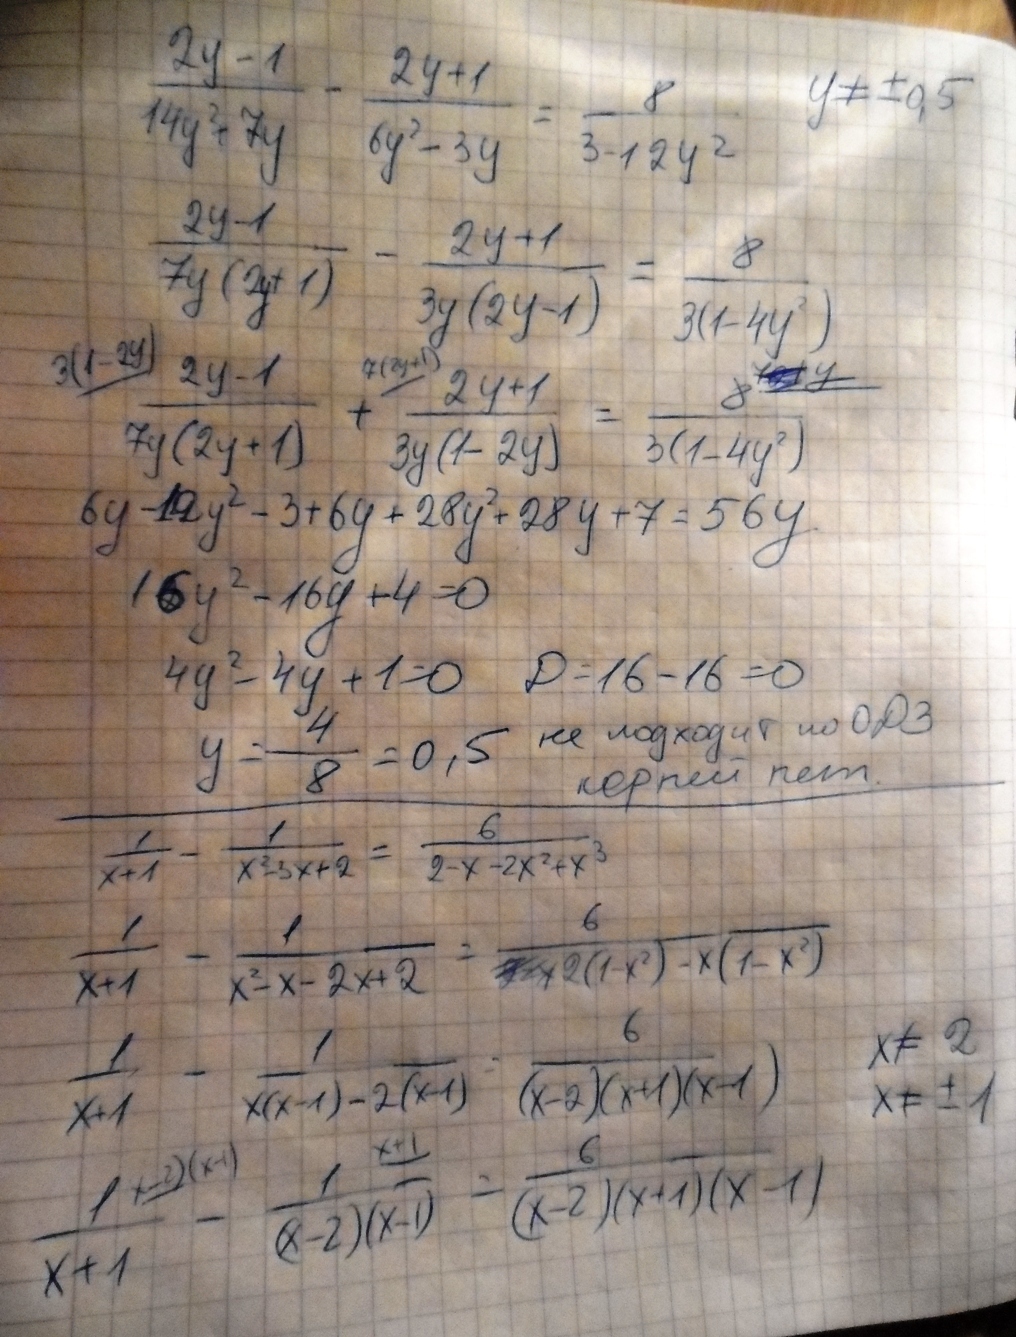 (2y-1)/(14y²+7y) - (2y+1)/(6y²-3y) = 8/(3-12y²) y≠±0,5
(2y-1)/(7y(2y+1)) - (2y+1)/(3y(2y-1)) = 8/(3(1-4y²))
3(1-2y) (2y-1)/(7y(2y+1)) + 7(2y+1) (2y+1)/(3y(1-2y)) = 8/(3(1-4y²))
6y-12y²-3+6y+28y²+28y+7=56y
16y²-16y+4=0
4y²-4y+1=0 D=16-16=0
y=4/8=0,5 не подходит по ОДЗ
корней нет.
1/(x+1) - 1/(x²-3x+2) = 6/(2-x-2x²+x³)
1/(x+1) - 1/(x²-x-2x+2) = 6/(2(1-x²)-x(1-x²))
1/(x+1) - 1/(x(x-1)-2(x-1)) = 6/((x-2)(x+1)(x-1)) x≠2
x≠±1
1/(x+1) (x-2)(x-1) - 1/((x-2)(x-1)) x+1 = 6/((x-2)(x+1)(x-1))